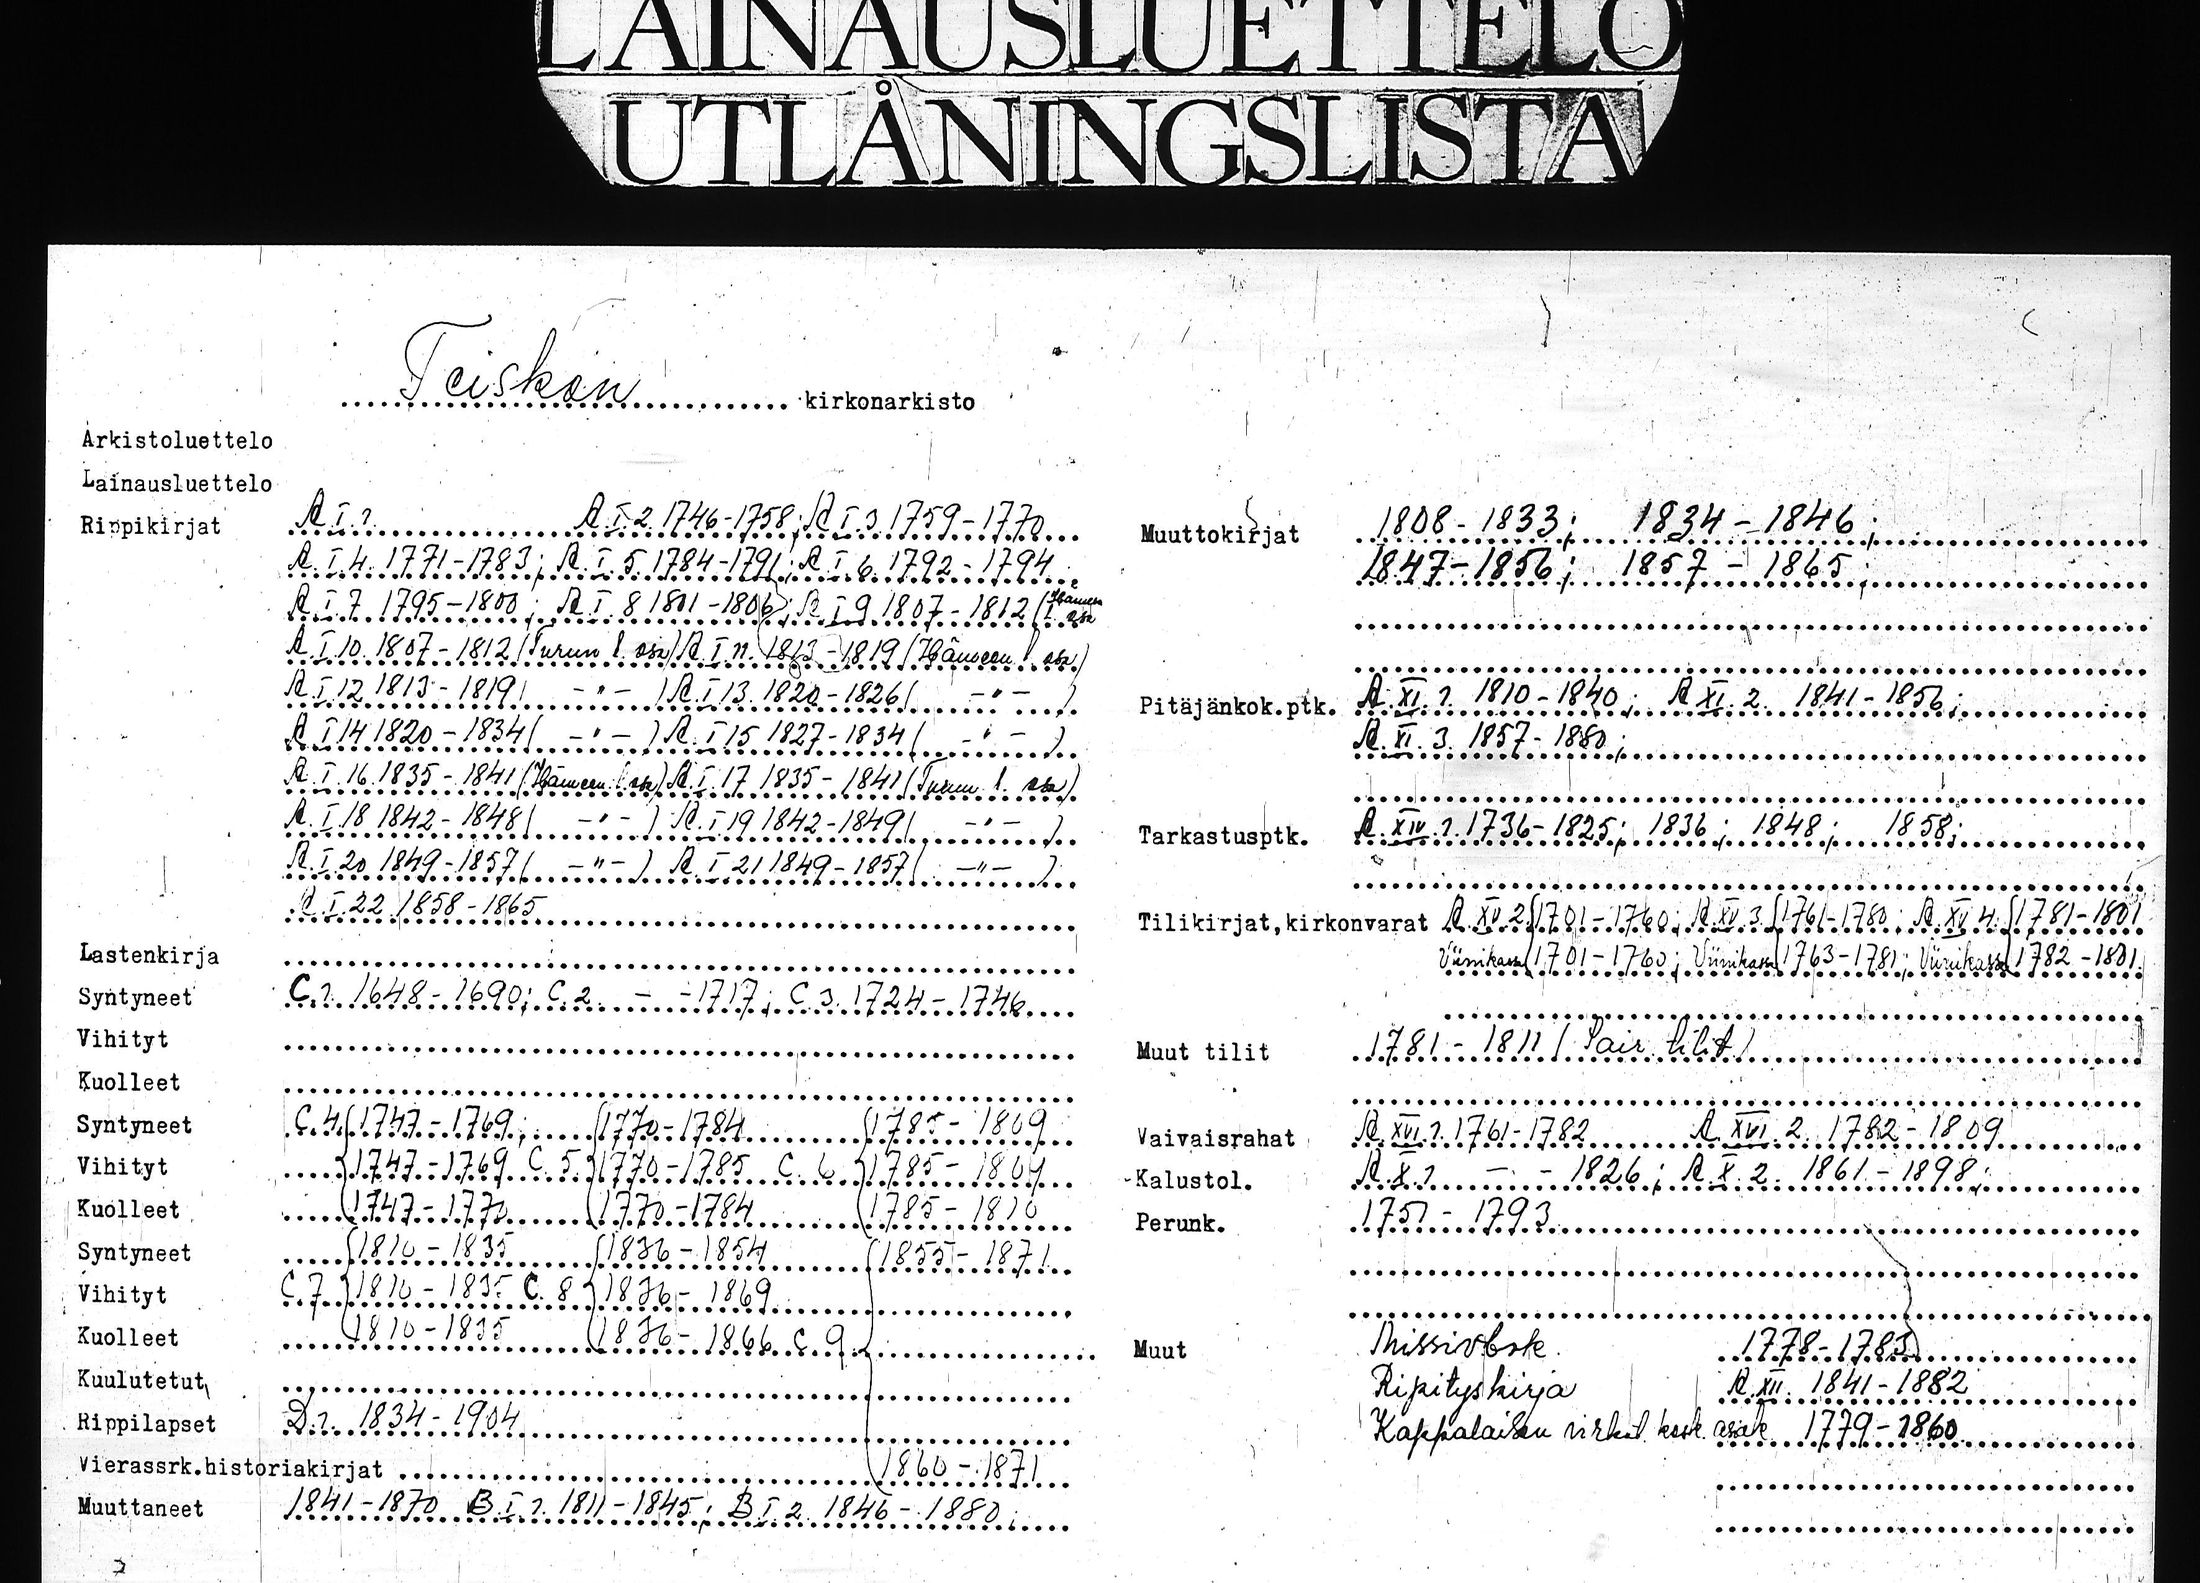 LAINAUSLUETTELO
UTLÅNINGSLISTA
Teiskon kirkonarkisto
Arkistoluettelo
Lainausluettelo
Rippikirjat A I.1. A I.2. 1746-1758; A I.3. 1759-1770
A.I.4. 1771-1783; A.I.5. 1784-1791; A I 6. 1792-1794
A.I.7 1795-1800; A I.8 1801-1806; A I 9 1807-1812 (Hämeen l. osa
A.I.10. 1807-1812 (Turun l. osa) A.I.11. 1813-1819 (Hämeen l. osa)
A.I.12 1813-1819 ( -"- ) A.I.13. 1820-1826 ( -"- )
A I 14 1820-1834 ( -"- ) A.I 15 1827-1834 ( -"- )
A.I.16. 1835-1841 (Hämeen l. osa) A.I.17 1835-1841 (Turun l. osa)
A.I.18 1842-1848 ( -"- ) A.I.19 1842-1849 ( -"- )
A.I.20 1849-1857 ( -"- ) A.I.21 1849-1857 ( -"- )
A.I.22 1858-1865
Lastenkirja
Syntyneet C.1. 1648-1690; C.2. - -1717; C.3. 1724-1746
Vihityt
Kuolleet
Syntyneet C.4 1747-1769; 1770-1784 1785-1809
Vihityt 1747-1769 C.5. 1770-1785 C.6 1785-1809
Kuolleet 1747-1770 1770-1784 1785-1810
Syntyneet 1810-1835 1836-1854 1855-1871
Vihityt C.7 1810-1835 C.8 1836-1869
Kuolleet 1810-1835 1836-1866 C.9.
Kuulutetut
Rippilapset D.1. 1834-1904
Vierassrk.historiakirjat 1860-1871
Muuttaneet 1841-1870 B.I.1. 1811-1845; B.I.2. 1846-1880
Muuttokirjat 1808-1833; 1834-1846;
1847-1856; 1857-1865;
Pitäjänkok.ptk. A.XI.1. 1810-1840; A XI.2. 1841-1856;
A.XI.3. 1857-1880;
Tarkastusptk. A.XIV.1. 1736-1825; 1836; 1848; 1858;
Tilikirjat,kirkonvarat A.XV.2. 1701-1760; A.XV.3. 1761-1780; A.XV.4. 1781-1801
Viinikassa 1701-1760; Viinikassa 1763-1781; Viinikassa 1782-1801
Muut tilit 1781-1811 (Sair. tilit)
Vaivaisrahat A.XVI.1. 1761-1782 A.XVI.2. 1782-1809
Kalustol. A.X.1 - - 1826; A.X.2. 1861-1898;
Perunk. 1751-1793
Muut 1778-1783
Ripityskirja A.XII. 1841-1882
Kappalaisen virkat. kosk. asiak 1779-1860